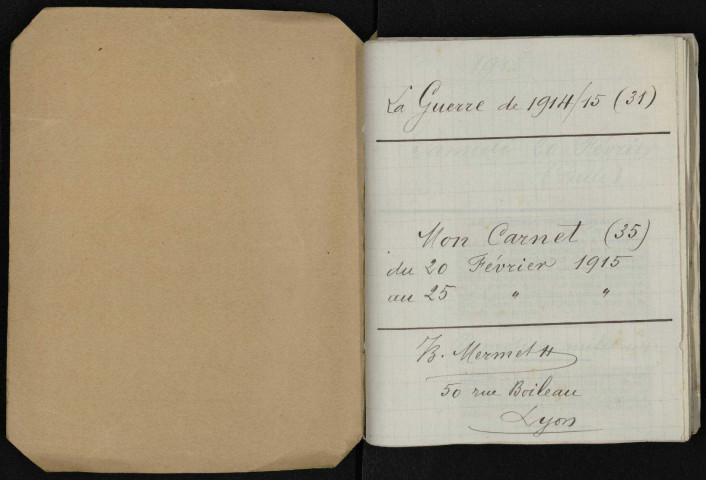 La Guerre de 1914/15 (31)
Mon Carnet (35)
du 20 Février 1915
au 25 " "
B. Mermet
50 rue Boileau
Lyon